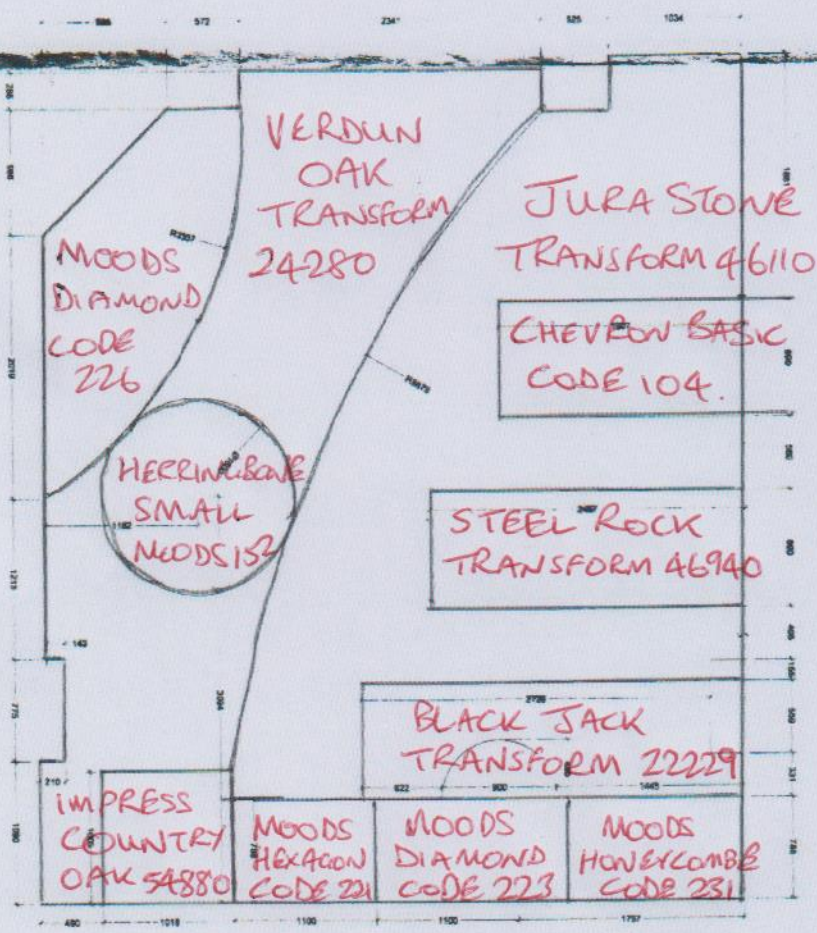 572
525
1034
VERDUN
OAK
TRANSFORM
24280
JURA STONE
TRANSFORM 46110
MOODS
DIAMOND
CODE
226
CHEVRON BASIC
CODE 104.
HERRINGBONE
SMALL
MOODS 152
STEEL ROCK
TRANSFORM 46940
BLACK JACK
TRANSFORM 22229
IMPRESS
COUNTRY
OAK 54880
MOODS
HEXAGON
CODE 221
MOODS
DIAMOND
CODE 223
MOODS
HONEYCOMBE
CODE 231
143
2019
1213
775
210
1090
331
622
900
1445
490
1018
1100
1100
1797